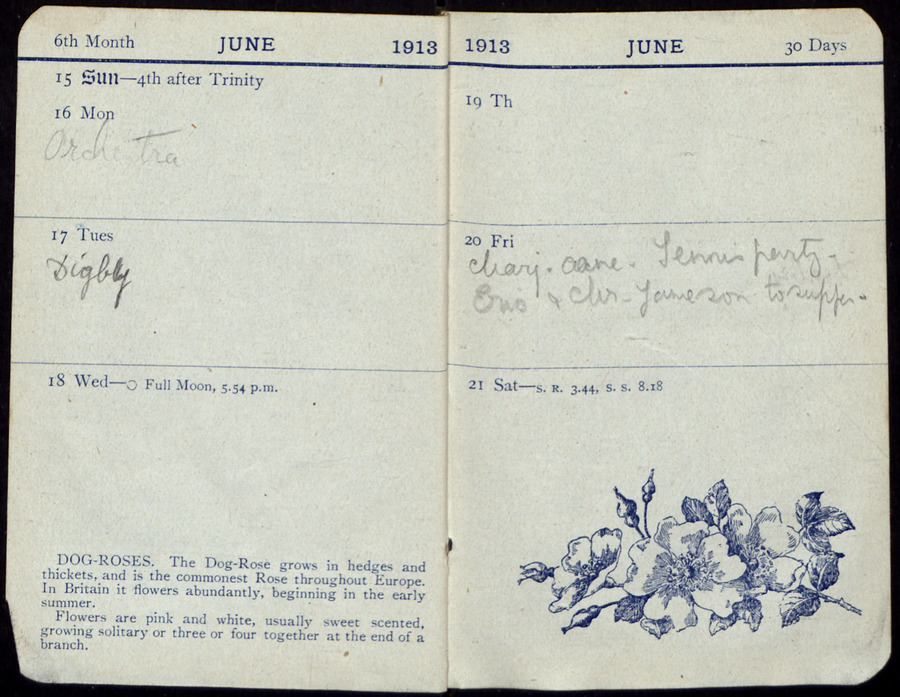 6th Month JUNE 1913
15 Sun—4th after Trinity
16 Mon
Orchestra
17 Tues
Digby
18 Wed—○ Full Moon, 5.54 p.m.
DOG-ROSES. The Dog-Rose grows in hedges and
thickets, and is the commonest Rose throughout Europe.
In Britain it flowers abundantly, beginning in the early
summer.
Flowers are pink and white, usually sweet scented,
growing solitary or three or four together at the end of a
branch.
1913 JUNE 30 Days
19 Th
20 Fri
Tennis party-
& Jameson to supper-
21 Sat—S. R. 3.44, S. S. 8.18